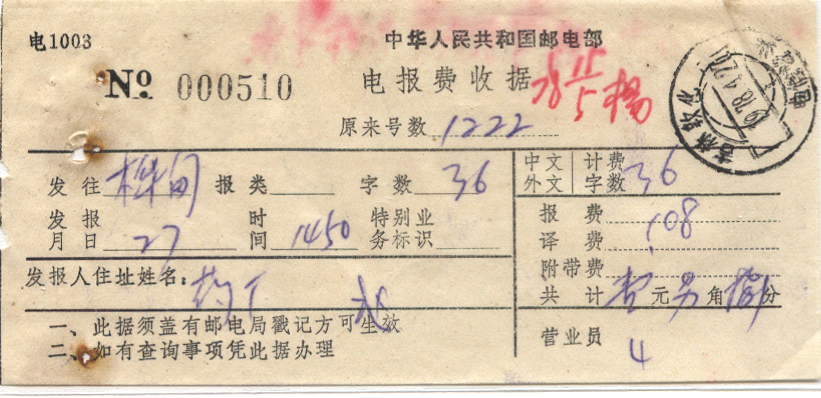 电1003
中华人民共和国邮电部
No 000510
电报费收据
78 15/5 杨
原来号数 1222
发往 桦甸 报类 字数 36
中文 外文 计费字数 36
发报月日 27 时间 1450 特别业务标识
报费 1.08
译费
附带费
共计 壹元另角捌分
发报人住址姓名：
一、此据须盖有邮电局戳记方可生效
二、如有查询事项凭此据办理
营业员 4
吉林敦化